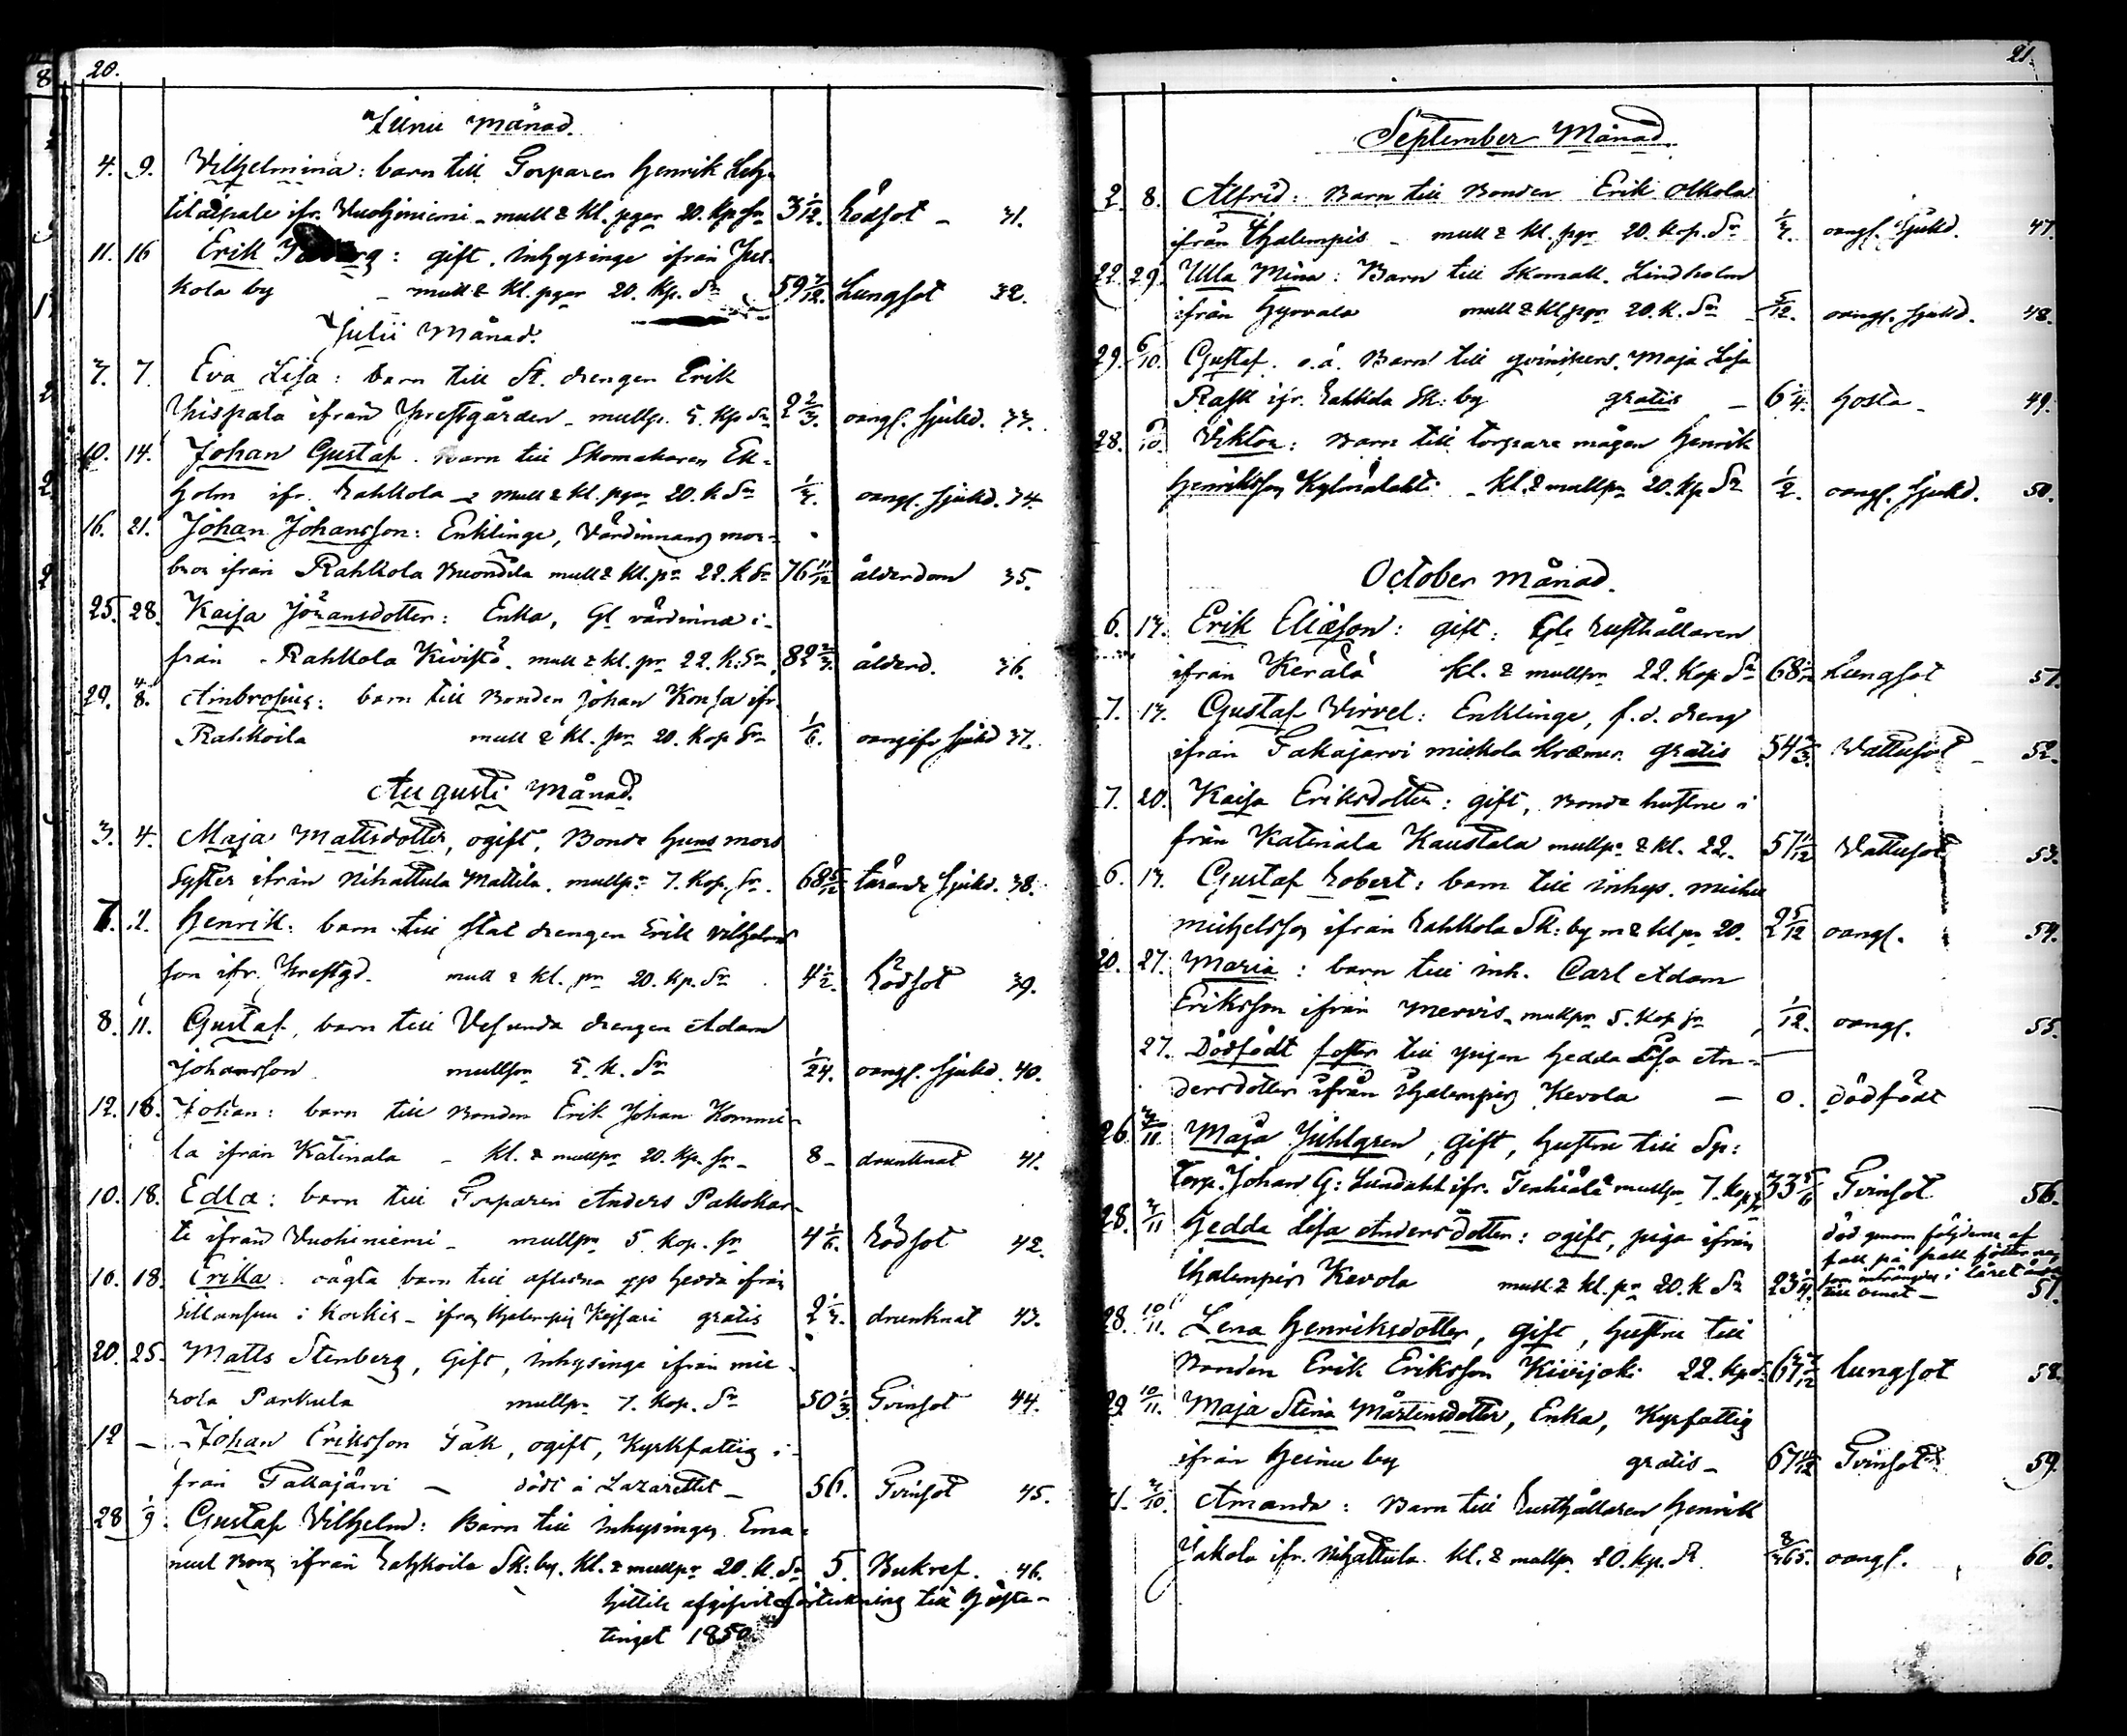 20.
Junii Månad.
4. 9. Vilhelmina: barn till Torparen Henrik Leh-
ifr. Vuohiniemi - mull & kl. pgar 20. kp. Sr 3 1/12. Rödsot - 31.
11. 16 Erik : gift. Inhysinge ifrån Jus-
kola by - mull & kl. pgar 20. Kp. Sr 59 7/12. Lungsot 32.
Julii Månad.
7. 7. Eva Lisa: barn till St. drengen Erik
ifrån Prestgården - mullp. 5. Kp Sr 2 2/3. oangf. sjukd. 33.
10. 14. Johan Gustaf. Barn till Skomakaren Ek-
holm ifr. Rahkola - mull & kl. pgar 20. k Sr 1/3. oangf. sjukd. 34.
16. 21. Johan Johansson: Enklinge, Värdinnans mor-
bror ifrån Rahkola mull & kl. pr 22. k Sr 76 11/12 ålderdom 35.
25. 28. Kaisa Johansdotter: Enka, Gl värdinna i-
från Rahkola Kivistö. mull & kl. pr. 22. K. Sr 82 2/3. ålderd. 36.
29. 4/8. Ambrosius: barn till Bonden Johan Konsa ifr.
Rahkoila mull & kl. pr 20. Kop Sr 1/6. oangifv sjukd 37.
Augusti Månad.
3. 4. Maja Mattsdotter, ogift, Bonde Hens mors
Syster ifrån Nihattula Mattila. mullpr 7. Kop. Sr. 68 5/12 tärande sjukd. 38.
7. 11. Henrik: barn till Stat drengen Erik Vilhelms
son ifr. Prestgd. mull & kl. pr 20. Kp. Sr 4 1/2. Rödsot 39.
8. 11. Gustaf, barn till Vesunda drengen Adam
Johansson mullpr 5. k. Sr 1/24. oangf. sjukd. 40.
12. 18. Johan: barn till Bonden Erik Johan Kommi-
la ifrån Katinala - kl. & mullpr 20. Kp. Sr - 8 - drunknat 41.
10. 18. Edla: barn till Torparen Anders Pakokar-
ti ifrån Vuohiniemi - mullpr 5 Kop. Sr 4 1/6. Rödsot 42.
16. 18. Erika. oägta barn till aflidna Hedda ifrån
Sillansuu i Korkis - gratis 2 1/3. drunknat 43.
20. 25. Matts Stenberg, Gift, Inhysinge ifrån Mie-
rola Parkula mullpr 7. Kop. Sr 50 1/3. Tvinsot 44.
12 - - Johan Eriksson Tåk, ogift, Kyrkfattig i-
från Takajärvi - död å Lazarettet - 56. Tvinsot 45.
28 1/9. Gustaf Vilhelm: Barn till Inhysingen Ema-
nuel Borg ifrån Rahkoila Sk: by. kl. & mullpr 20. k. Sr 5. Bukref. 46.
hittills afgifvit förteckning till Höste-
tinget 1850.
21.
September Månad.
2. 8. Alfrid: Barn till Bonden Erik Ollola
ifrån Thalempis - mull & kl. pgr 20. kop. Sr 1/3. oangf. sjukd. 47.
22. 29. Ulla Mina: Barn till Skomak. Lindholm
ifrån Hyrvala mull & kl pgr 20. K. Sr 5/12. oangf. sjukd. 48.
29. 6/10. Gustaf. o. ä. Barn till qvinspers. Maja Lisa
Rask ifr. Rahkola Sk: by gratis - 6 1/4. Hosta - 49.
28. Viktor: Barn till torpare mågen Henrik
Henriksson Kylmälahti - kl. & mullpr 20. kp Sr 1/2. oangf. sjukd. 50.
October Månad.
6. 13. Erik Eliæson: gift: Gle Rusthållaren
ifrån Kerälä kl. & mullpr 22. Kop Sr 68 Lungsot 51.
7. 13. Gustaf Virvel: Enklinge, f. d. dreng
ifrån Takajärvi Mickola Kræmer. gratis 54 2/3. Vattusot - 52.
7. 20. Kaisa Eriksdotter: gift, Bonde hustru i
från Katinala Kaustala mullpr & kl. 22. 57 Vattusot 53.
6. 13. Gustaf Robert: barn till Inhys. Michel
Michelsson ifrån Rahkola Sk: by m & kl pr 20. 2 5/12 oangf. 54.
20. 27. Maria: barn till Inh. Carl Adam
Eriksson ifrån Mervis - mullpr 5. Kop Sr 1/12. oangf. 55.
27. Dödfödt foster till pigan Hedda Lisa An-
dersdotter ifrån Thalempis Kevola - 0. Dödfödt -
26. 3/11. Maja Juhlgren, gift, hustru till Sp:
Torp. Johan G: Lundahl ifr. Tenhiälä mullpr 7. Kop 33 Tvinsot 56.
28. 3/11 Hedda Lisa Andersdotter: ogift, piga ifrån
Thalempis Kevola mull & kl. pr 20. k Sr 23 död genom följderna af
fall på i låret ända
till benet - 57.
28. 10/11. Lena Henriksdotter, gift, Hustru till
Bonden Erik Eriksson Kivijoki 22. kp. Sr 67 Lungsot 58.
29 10/11. Maja Stina Mårtensdotter, Enka, Kyrfattig
ifrån Heinu by gratis - 67 Tvinsot 59.
Amanda: Barn till Rusthållaren Henrik
Jakola ifr. Nihattula. kl. & mullpr 20. kp. Sr 8/365. oangf. 60.